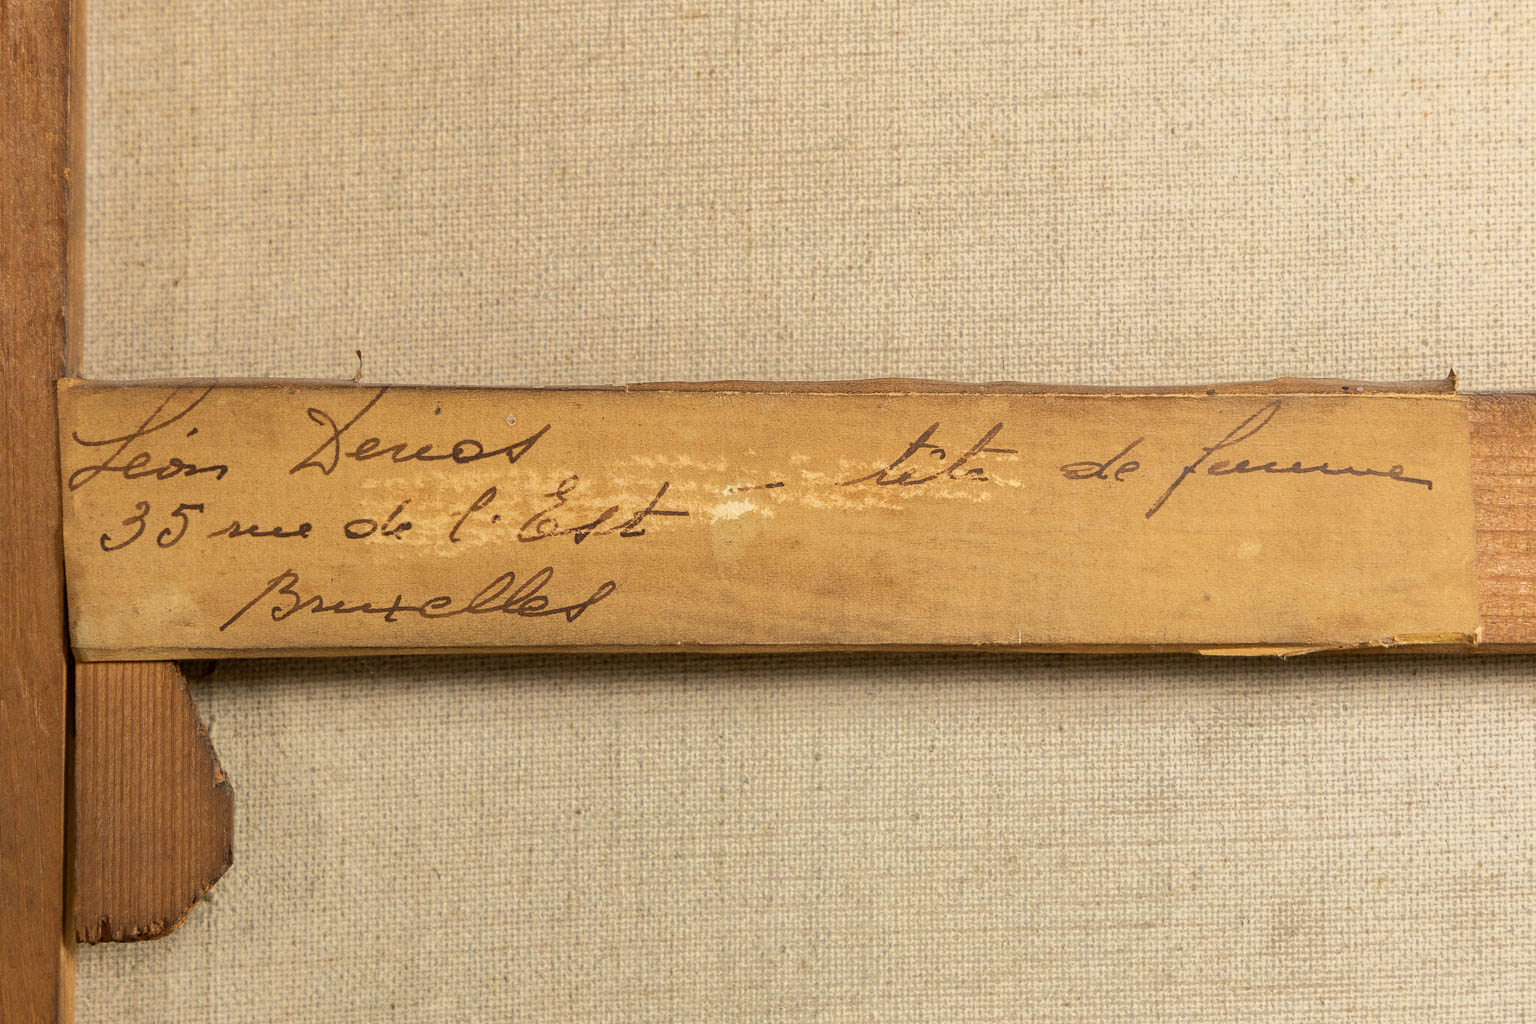 Léon Devos
35 rue de l'Est – tête de femme
Bruxelles